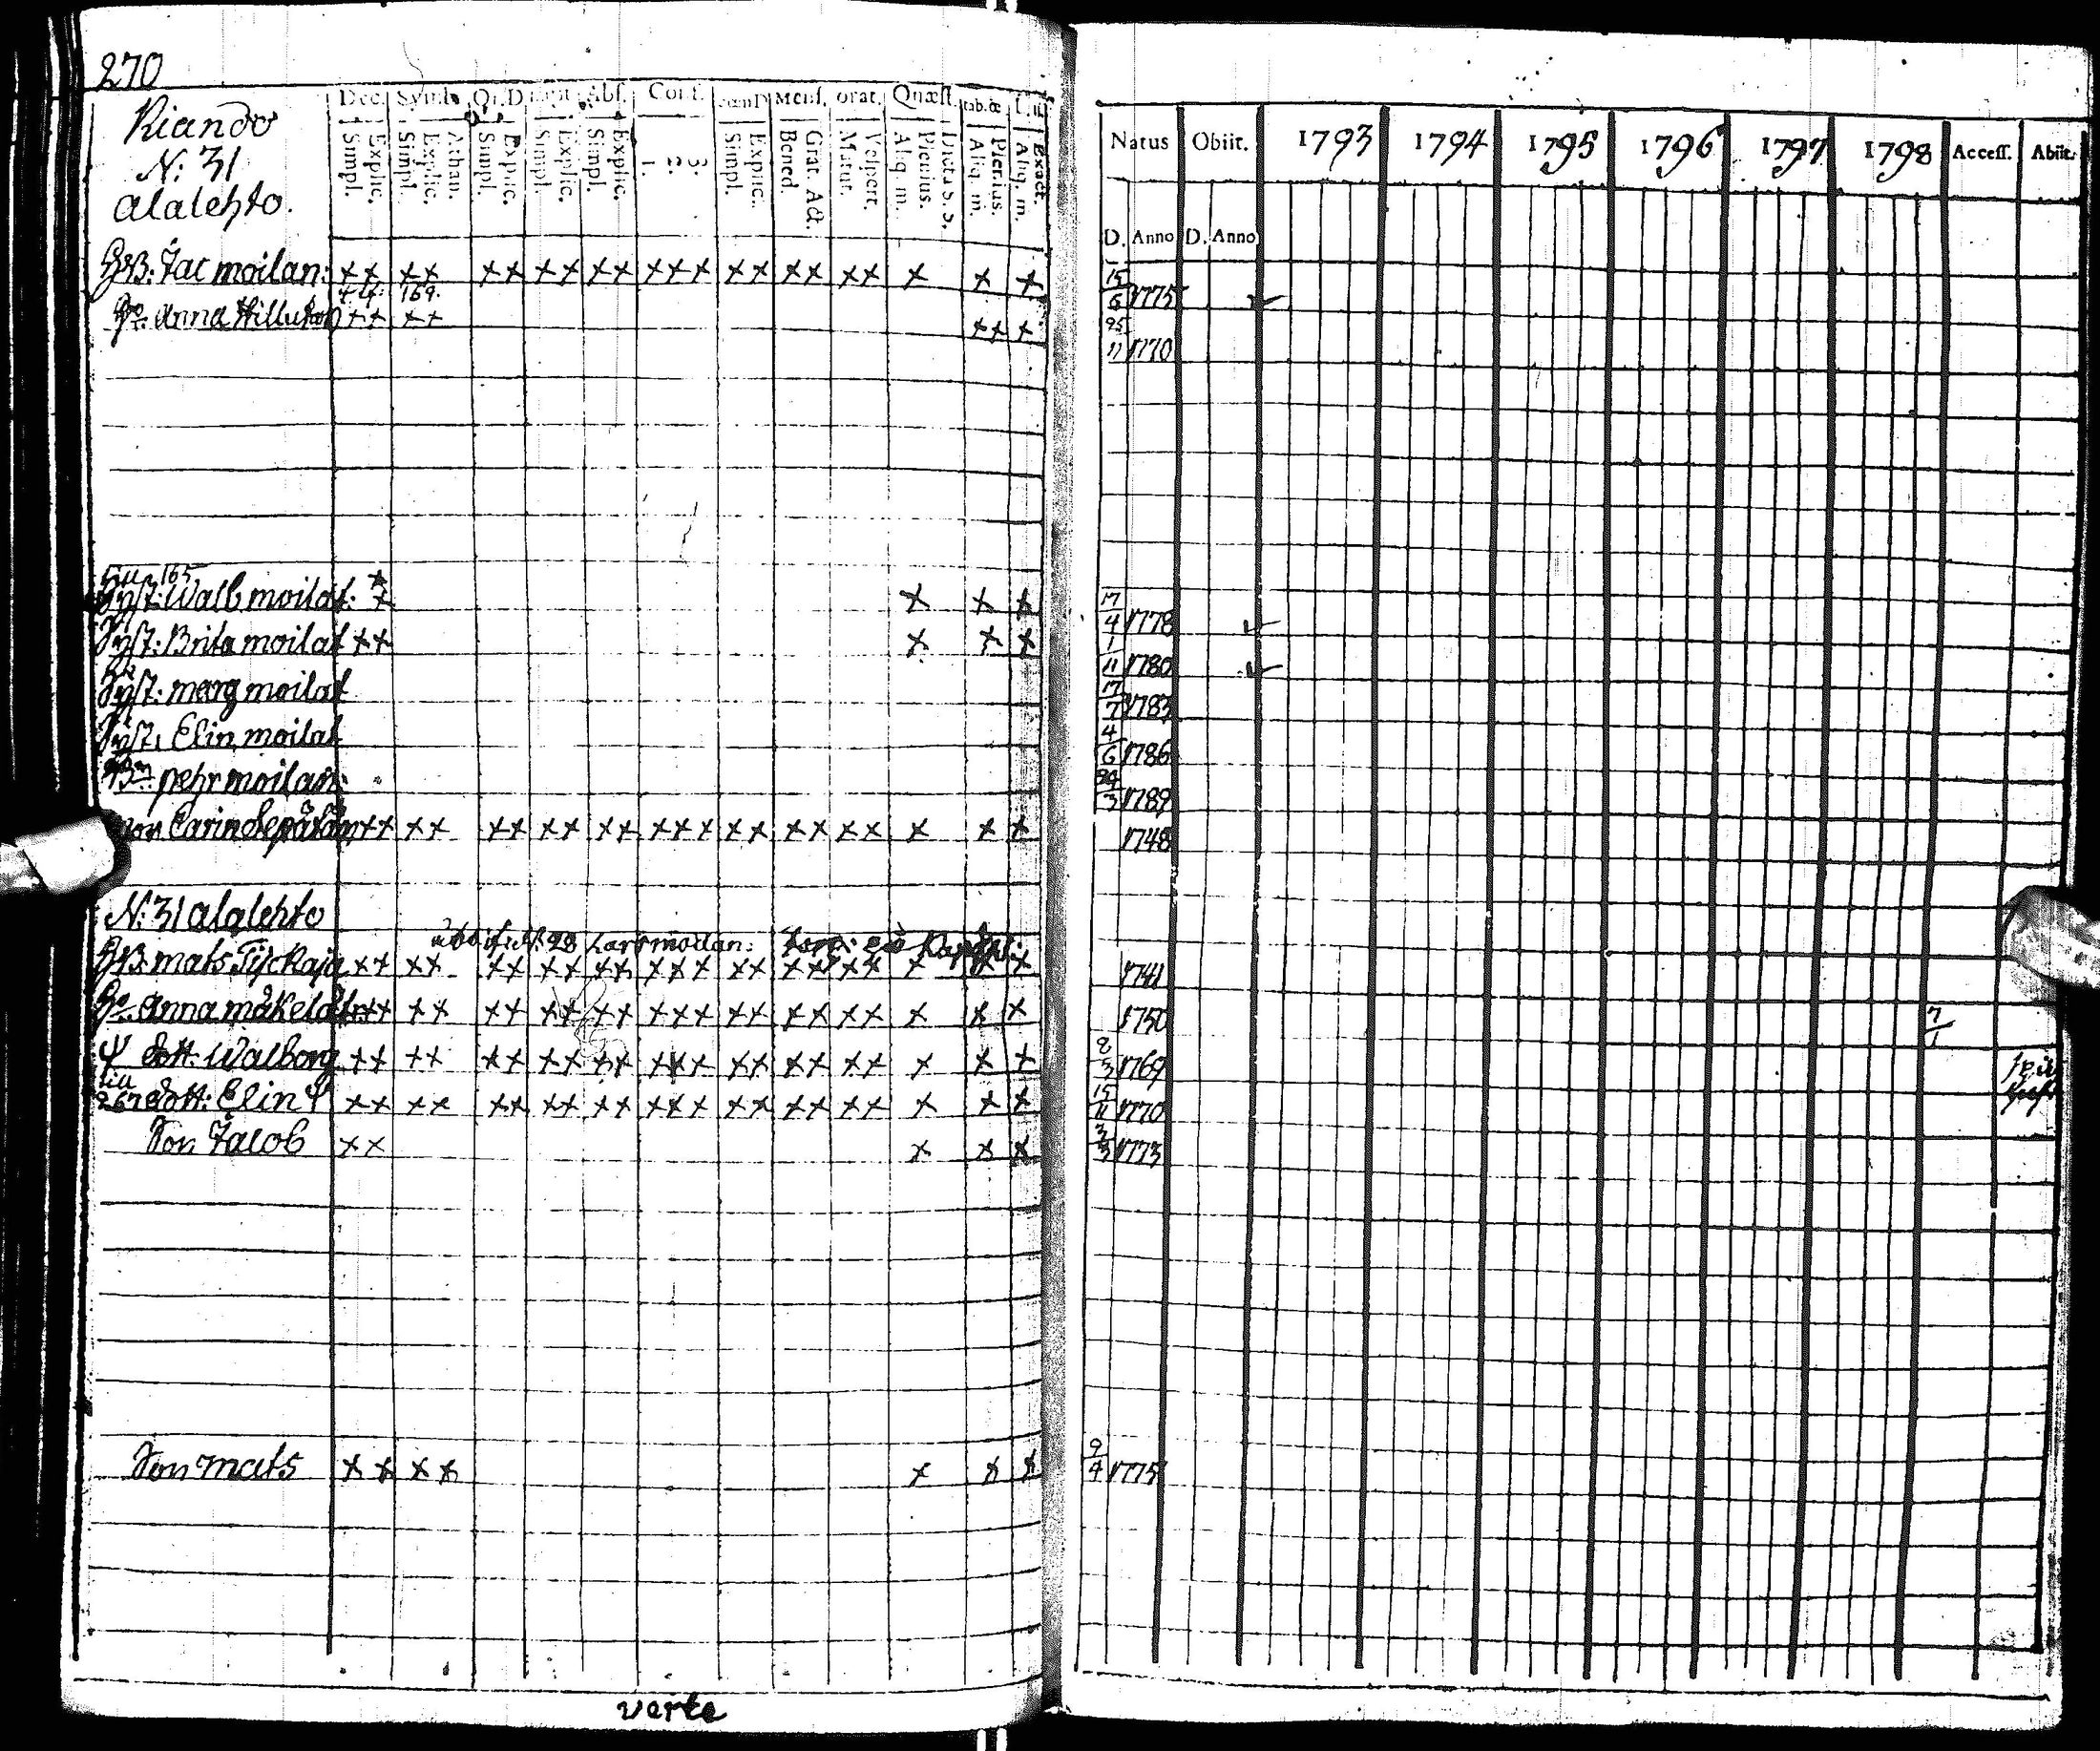 270
Kiando
N: 31
alalehto.
Dec. Symb. Or. D Bapt. Abs. Conf. Cœn D Mens. orat. Quæst. tab. œ
Simpl. Explic. Simpl. Explic. Athan. Simpl. Explic. Simpl. Explic. Simpl. Explic. 1. 2. 3. Simpl. Explic. Bened. Grat. Act. Matut. Vesper. Aliq. m. Plenius. Dicta S. S. Aliq. m. Plenius. Aliq. m. Exact.
Natus Obiit. 1793 1794 1795 1796 1797 1798 Access. Abiit.
D. Anno D. Anno
Jac moilan: xx xx xx xx xx xxx xx xx xx x x x 15/6 1775
169.
anna xx xx xx x 11 1770
165
Inst: Walb moilat: x x x x 17/4 1778
Inst: Brita moilat xx x x x 1/11 1780
Inst: marg moilat 17/7 1783
Inst: Elin moilat 4/6 1786
pehr moilan: 3 1789
Carin xx xx xx xx xx xxx xx xx xx x x x 1748
N: 31 alalehto
28 Lars moilan:
mats Tyckäja xx xx xx xx xx xxx xx xx xx x x x 1741
anna mäkelä xx xx xx xx xx xxx xx xx xx x x x 1750 7/1
Ψ dott: Walborg xx xx xx xx xx xxx xx xx xx x x x 8/3 1769
till
267 dott: Elin Ψ xx xx xx xx xx xxx xx xx xx x x x 15/11 1770
Son Jacob xx x x x 3/3 1773
Son mats xx xx x x x 9/4 1775
verte